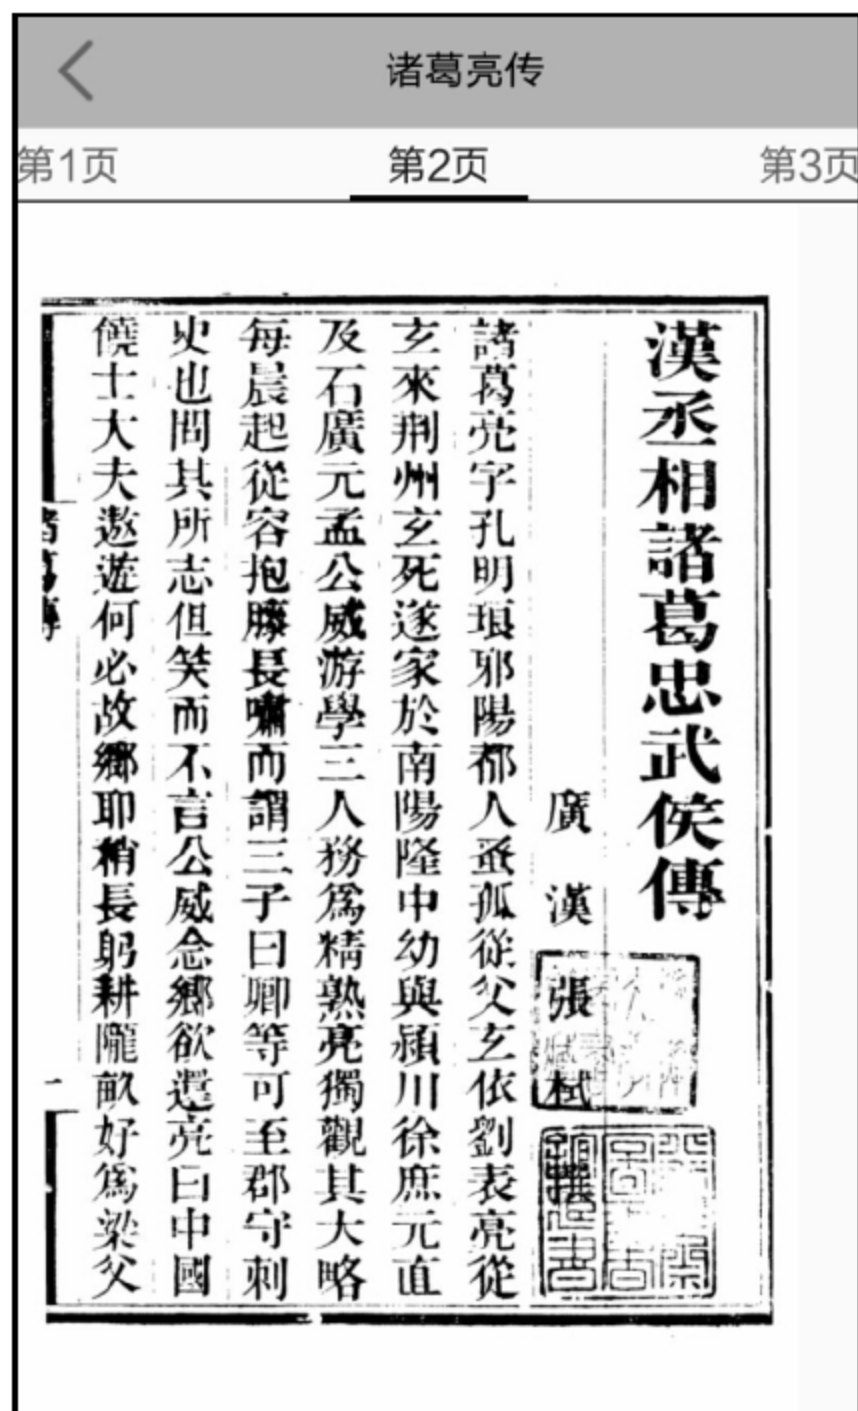 诸葛亮传
第1页
第2页
第3页
漢丞相諸葛忠武侯傳
廣漢張栻撰
諸葛亮字孔明琅邪陽都人蚤孤從父玄依劉表亮從
玄來荆州玄死遂家於南陽隆中幼與潁川徐庶元直
及石廣元孟公威游學三人務爲精熟亮獨觀其大略
每晨起從容抱膝長嘯而謂三子曰卿等可至郡守刺
史也問其所志但笑而不言公威念鄉欲還亮曰中國
饒士大夫遨遊何必故鄉耶稍長躬耕隴畝好爲梁父
諸葛傳
一